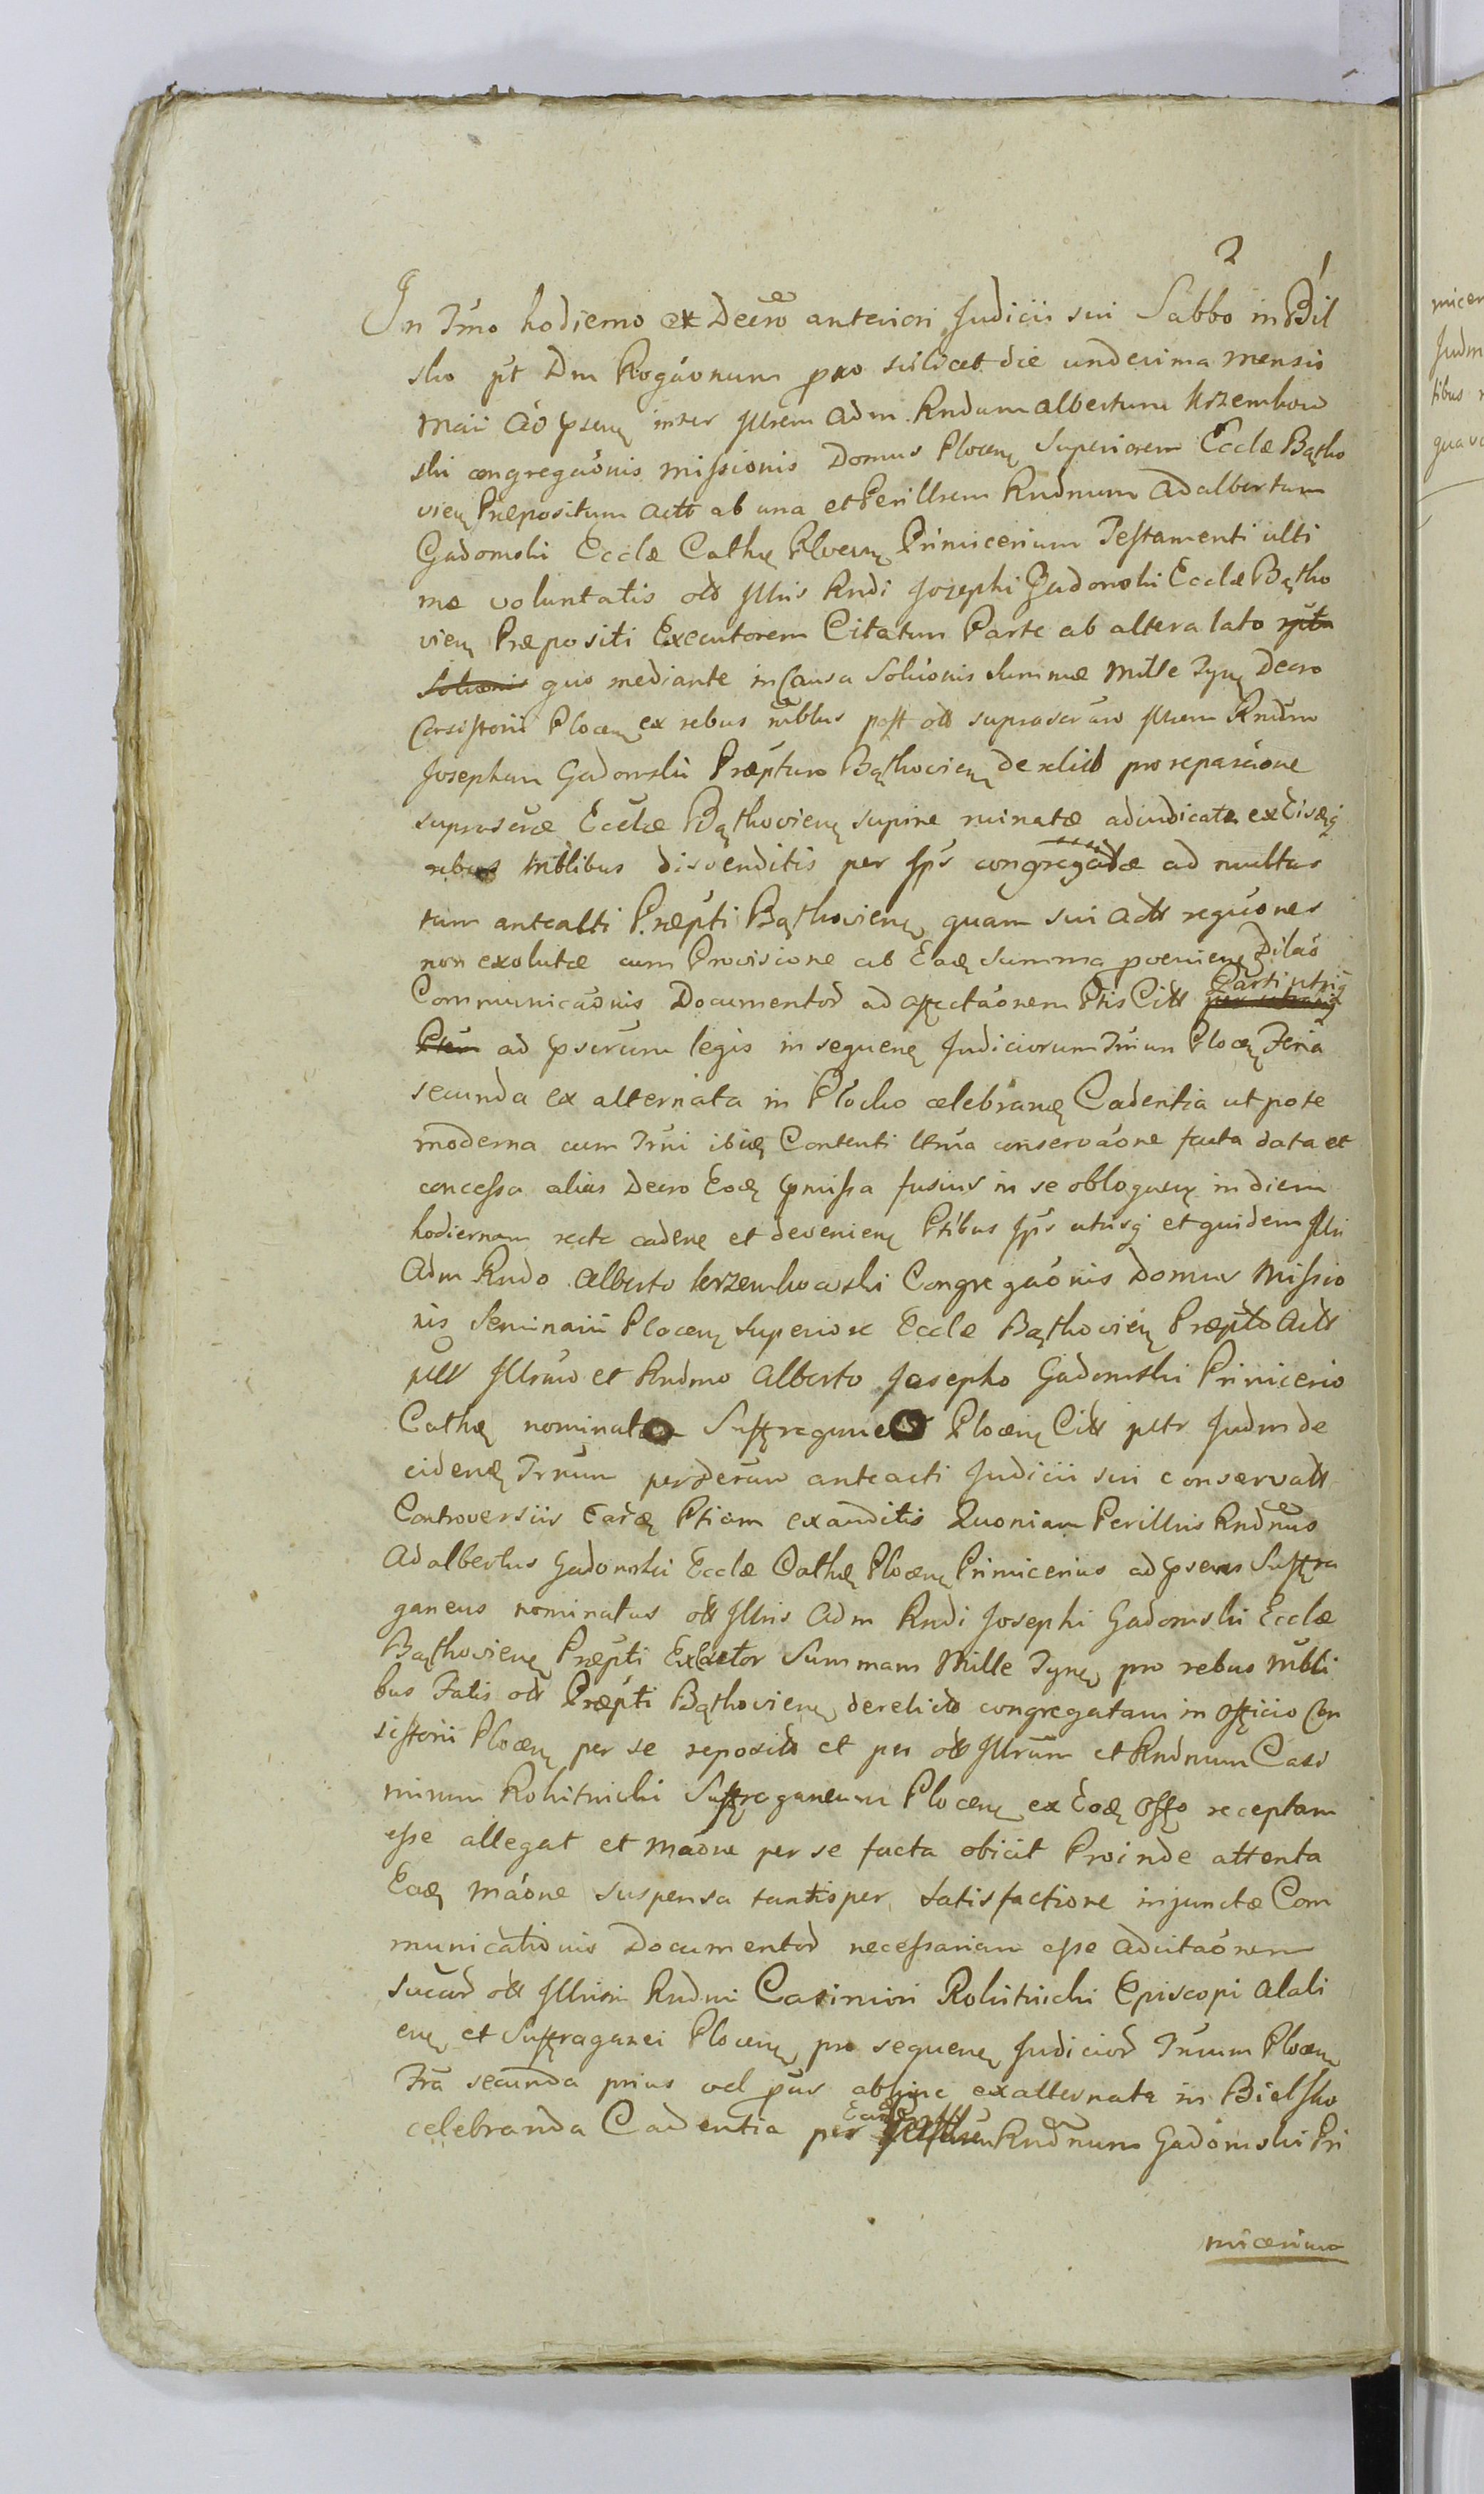 2 1
In Tmo hodierno ex Decro anteriori Judicii sui Sabbo in Bil
sko pt Dm Rogaonum pro scilicet die undecima mensis
Maii ad psens inter Illrem Adm Rndum Albertum Krzembow
ski congregaonis missionis Domus Plocen Superiorem Ecclæ Bątko
vien Præpositum actt ab una et Perillrem Rndnum Adalbertum
Gadomski Ecclæ Cathæ Plocen Primicerium Testamenti ulti
mæ voluntatis ott Illris Rndi Josephi Gadomski Ecclæ Bątko
vien Præpositi Executorem Citatum Parte ab altera lato
quo mediante in Causa Soluonis Summæ Mille Tyn Decro
Consistorii Plocen ex rebus mblbus post ott suprascrum Illrem Rndum
Josephum Gadomski Præptum Bątkovien derelict pro reparaone
suprascræ Ecclæ Bątkovien supine ruinatæ adiudicata ex Eisdeq
rebus mblibus divenditis per Ips congregatæ ad multas
tam anteacti Præpti Bątkovien quam sui Actt requones
non exolutæ cum Provisione ab Eade Summa provenien Dilao
Communicaonis Documentor ad affectaonem Ptis Citt Parti utriq
ad pscrum legis in sequen Judiciorum Trium Plocen Feria
secunda ex alternata in Plocko celebran Cadentia utpote
moderna cum Trni ibide Contenti ltma conservaone facta data et
concessa alias Decro Eode pmissa fusius in se obloquen in diem
hodiernam recte caden et devenien Ptibus Ips utrisq et quidem Illri
Adm Rndo Alberto Krzembowski Congregaonis Domus Missio
nis Seminarii Plocen Superiore Ecclæ Bątkovien Præpto Actt
Illrmo et Rndmo Alberto Josepho Gadomski Primicerio
Cathæ nominato Suffraganeo Plocen Citt pltr Judm de
ciden Trnum per Decrum anteacti Judicii sui conservatt
Controversiis Earde Ptium exauditis Quoniam Perillris Rndnus
Adalbertus Gadomski Ecclæ Cathæ Plocen Primicerius ad psens Suffra
ganeus nominatus ott Illris Adm Rndi Josephi Gadomski Ecclæ
Bątkovien Præpti Exctor Summam Mille Tyn pro rebus mbli
bus Fatis ott Præpti Bątkovien derelict congregatam in officio Con
sistorii Plocen per se reposit et per ott Illrum et Rndnum Casi
mirum Rokitnicki Suffraganeum Plocen ex Eode Offo receptam
esse allegat et Maone per se facta obicit Proinde attenta
Eade Maone suspensa tantisper satisfactione injunctæ Com
municationis Documentor necessariam esse adcitaonem
succor ott Illrmi Rndmi Casimiri Rokitnicki Episcopi Alali
en et Suffraganei Plocen pro sequen Judicior Trium Plocen
Fra secunda prius vel prius abhinc ex alternata in Bielsko
celebranda Cadentia per Eund Rndnum Gadomski Pri
micerium